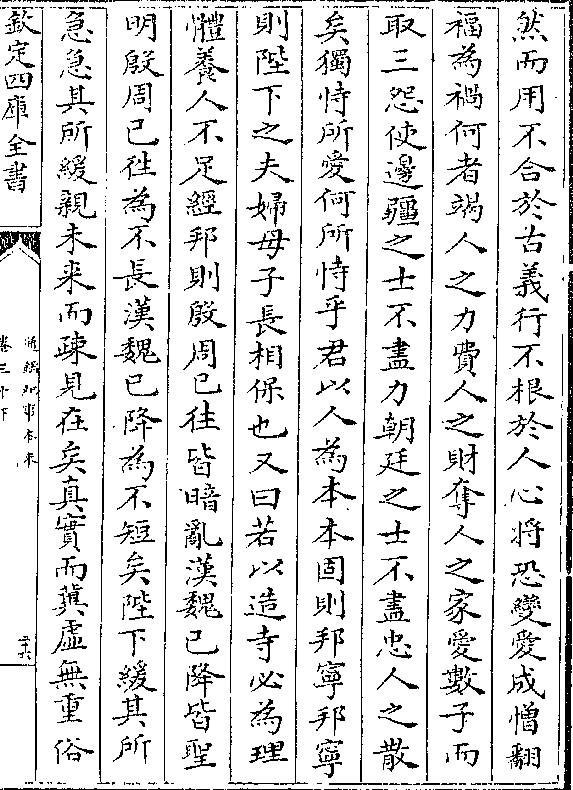 然而用不合於古義行不根於人心將恐變愛成憎翻
福為禍何者竭人之力費人之財奪人之家愛數子而
取三怨使邊疆之士不盡力朝廷之士不盡忠人之散
矣獨恃所愛何所恃乎君以人為本本固則邦寧邦寧
則陛下之夫婦母子長相保也又曰若以造寺必為理
體養人不足經邦則殷周已往皆暗亂漢魏已降皆聖
明殷周已往為不長漢魏已降為不短矣陛下緩其所
急急其所緩親未来而疎見在矣真實而冀虛無重俗
欽定四庫全書
通鑑紀事本末
卷三十下
二十六